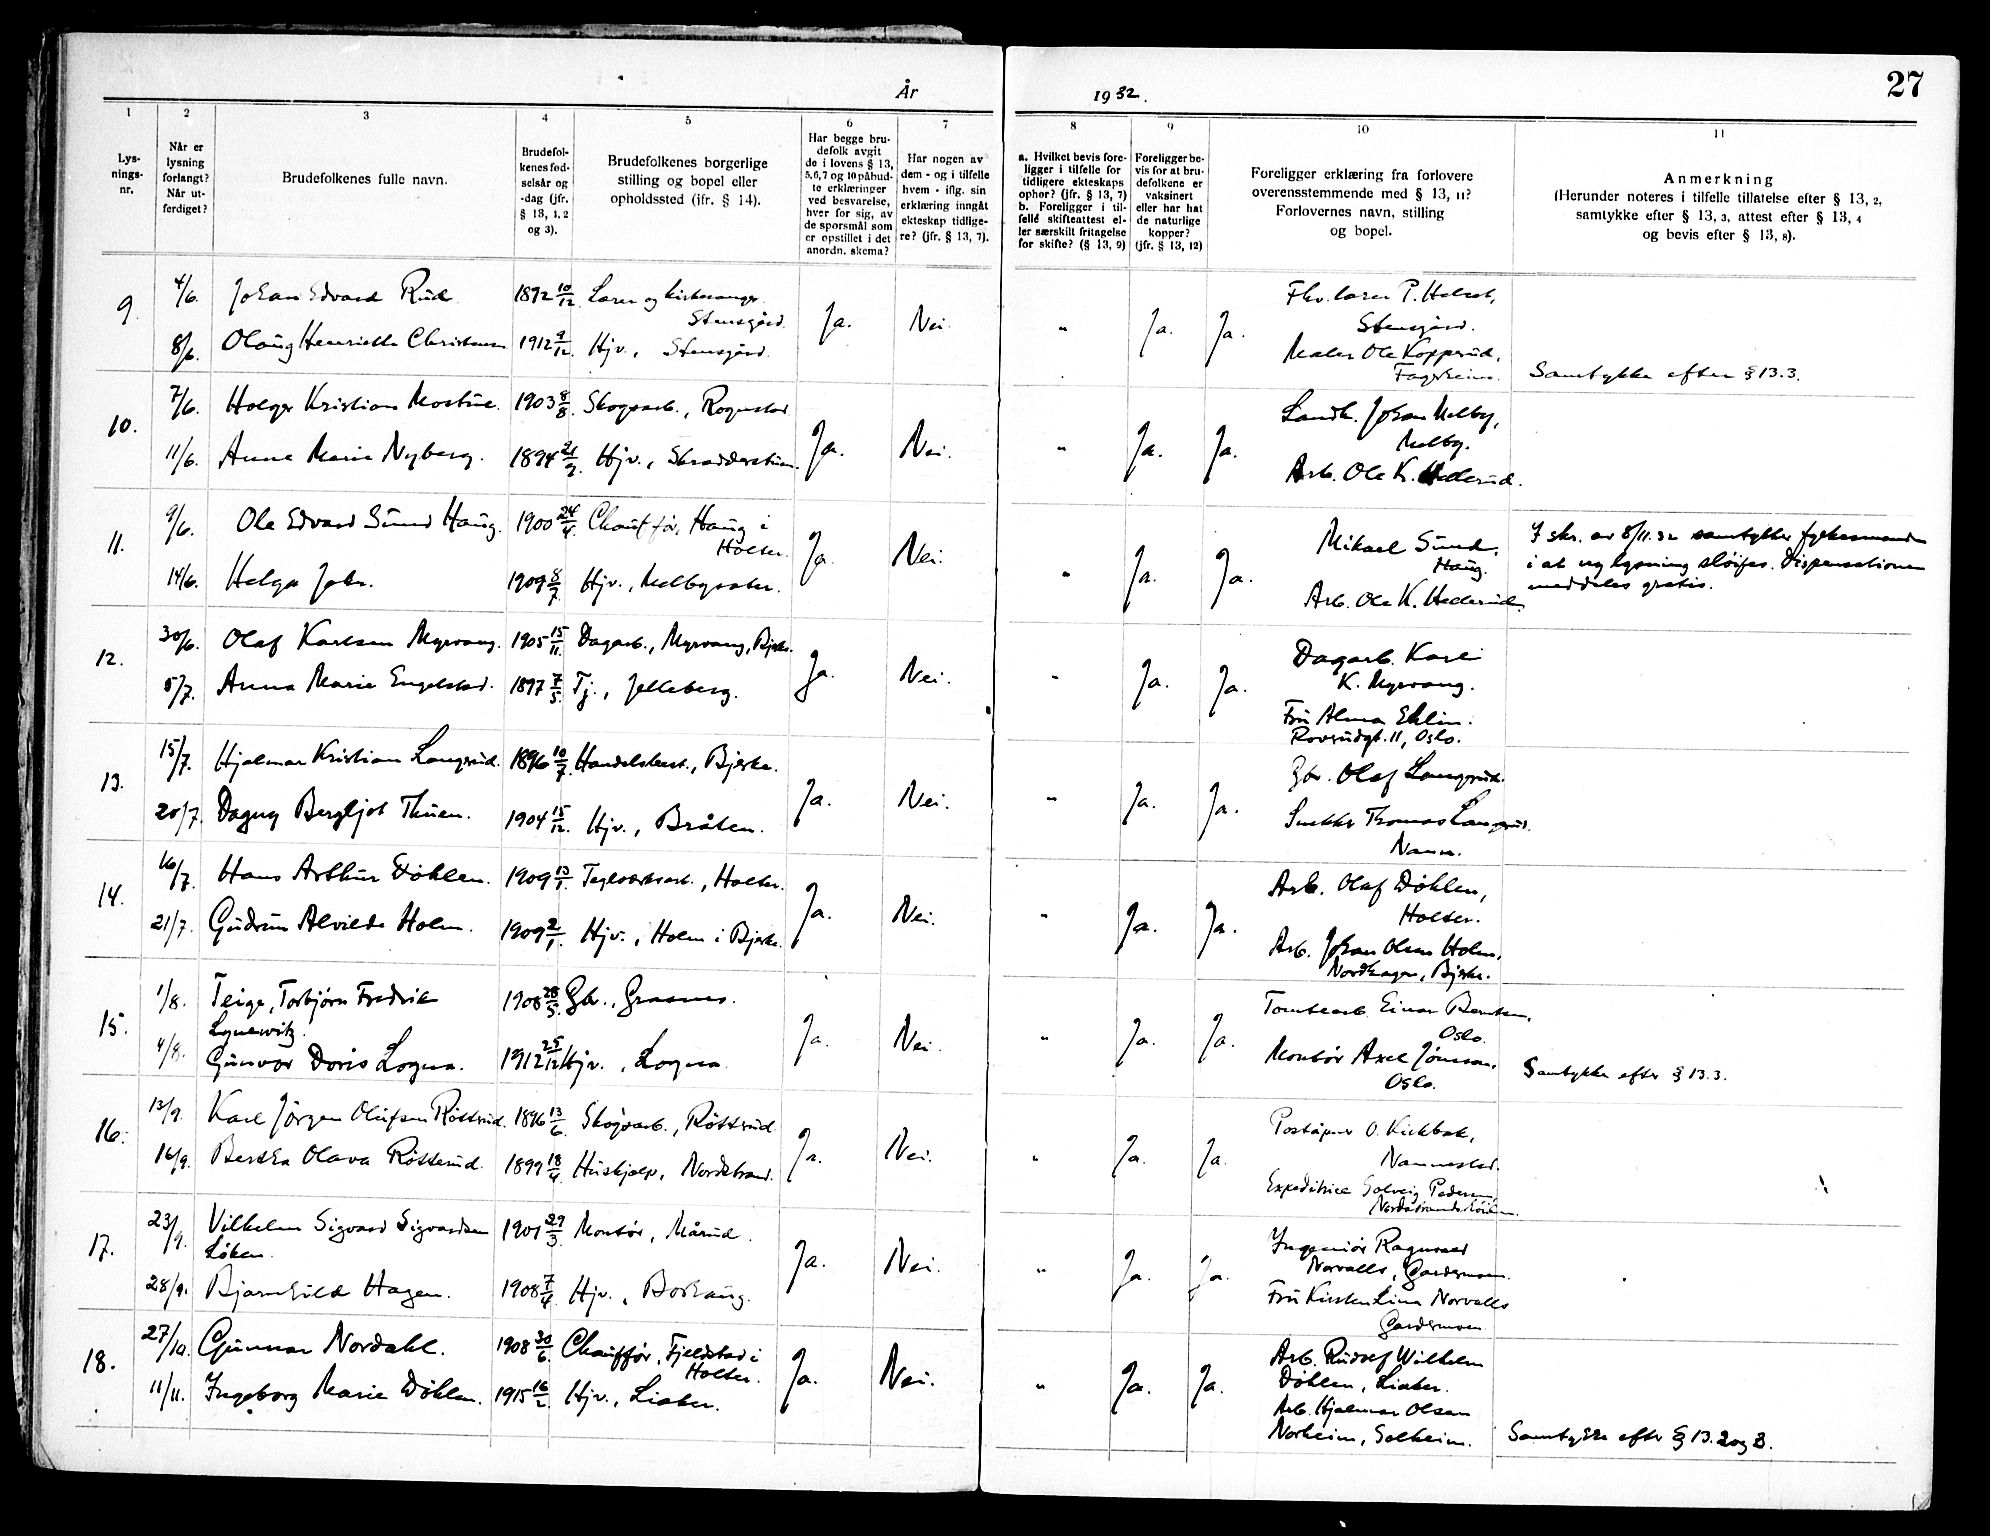 År
1932.
27
1
2
3
4
5
6
7
8
9
10
11
Lys-
nings-
nr.
Når er
lysning
forlangt?
Når ut-
ferdiget?
Brudefolkenes fulle navn.
Brudefol-
kenes fød-
selsår og
-dag (jfr.
§ 13, 1, 2
og 3).
Brudefolkenes borgerlige
stilling og bopel eller
opholdssted (jfr. § 14).
Har begge bru-
defolk avgitt
de i lovens § 13,
5,6,7 og 10 påbud-
te erklæringer
ved besvarelse,
hver for sig, av
de spørsmål som
er opstillet i det
anordn. skema?
Har nogen av
dem - og i tilfelle
hvem - iflg. sin
erklæring inngått
ekteskap tidlige-
re? (jfr. § 13, 7).
a. Hvilket bevis fore-
ligger i tilfelle for
tidligere ekteskaps
ophør? (jfr. § 13, 7)
b. Foreligger i til-
felle skifteattest el-
ler særskilt fritagelse
for skifte? (§ 13, 9)
Foreligger be-
vis for at bru-
defolkene er
vaksinert
eller har hat
de naturlige
kopper?
(jfr. § 13, 12)
Foreligger erklæring fra forlovere
overensstemmende med § 13, 11?
Forlovernes navn, stilling
og bopel.
Anmerkning
(Herunder noteres i tilfelle tillatelse efter § 13, 2,
samtykke efter § 13, 3, attest efter § 13, 4
og bevis efter § 13, 8).
9. 4/6. Johan Edvard Rud 1892 10/12 Lærer og kirkesanger Stensgård. Ja. Nei. " Ja. Ja. Fhv. lærer P. Holset,
Stensgård.
8/6. Olaug Henriette Christensen 1912 9/12 Hjv., Stensgård. Maler Ole Kopperud,
Fagerheim. Samtykke efter § 13.3.
10. 7/6. Holger Kristian Mostue 1903 8/8 Skogsarb., Rognstad Ja. Nei. " Ja. Ja. Landh. Johan Melby,
Melby.
11/6. Anna Marie Nyberg. 1894 21/9 Hjv., Skredderstuen. Arb. Ole K. Hederud.
11. 9/6. Ole Edvard Sund Haug. 1900 24/4 Chauffør, Haug i
Holter. Ja. Nei. " Ja. Ja. Mikael Sund,
Haug.
I skr. av 8/11.32 samtykker fylkesmannen
i at ny lysning sløifes. Dispensationen
meddeles gratis.
14/6. Helga Johr. 1909 8/7 Hjv., Melbysæter. Arb. Ole K. Hederud
12. 30/6. Olaf Karlsen Myrvang. 1905 15/11. Dagarb., Myrvang, Bjerke. Ja. Nei. " Ja. Ja. Dagarb. Karl
K. Myrvang.
5/7. Anna Marie Engelstad. 1897 7/5. Tj., Jelleberg. Fru Alma Ehlin.
Rovsudgt. 11, Oslo.
13. 15/7. Hjalmar Kristian Langsrud. 1896 10/7. Handelsbest., Bjerke. Ja. Nei. " Ja. Ja. Gbr. Olaf Langsrud.
20/7. Dagny Bergljot Thuen. 1904 15/12. Hjv., Bråten. Snekker Thomas Langsrud.
Nannn.
14. 16/7. Hans Arthur Døhlen. 1909 13/1. Teglverksarb., Holter. Ja. Nei. " Ja. Ja. Arb. Olaf Døhlen,
Holter.
21/7. Gudrun Alvilde Holm. 1909 2/1. Hjv., Holm i Bjerke. Arb. Johan Olsen Holm,
Nordhagen, Bjerke.
15. 1/8. Teige, Torbjørn Fredrik 1908 28/5. Gbr., Grasnes. Ja. Nei. " Ja. Ja. Tomtearb. Einar Berntsen,
Oslo.
Lynewitz.
4/8. Gunvor Doris Logna. 1912 25/12 Hjv., Logna Montør Axel Jönsson,
Oslo. Samtykke efter § 13.3.
16. 13/9. Karl Jørgen Olufsen Røtterud. 1896 13/6. Skogsarb., Røtterud. Ja. Nei. " Ja. Ja. Poståpner O. Kirkbak,
Nannestad.
16/9. Bertha Olava Røtterud. 1899 18/4 Hushjelp, Nordstrand. Expeditrice Solveig Pedersen
Nordstrandshøiden.
17. 23/9. Vilhelm Sigvard Sigvardsen 1901 29/3. Montør, Mårud. Ja. Nei. " Ja. Ja. Ingeniør Ragnvald
Norvalls, Gardermoen.
Løken.
28/9. Bjarnhild Hagen. 1908 7/4. Hjv., Borhaug. Fru Kirsten Lina Norvalls
Gardermoen.
18. 27/10. Gunnar Nordahl. 1908 30/6. Chauffør, Fjeldstad i
Holter. Ja. Nei. " Ja. Ja. Arb. Rudolf Wilhelm
Døhlen, Liaker.
11/11. Ingeborg Marie Døhlen. 1915 16/2. Hjv., Liaker. Arb. Hjalmar Olsen
Norheim, Solheim. Samtykke efter § 13.2 og 3.